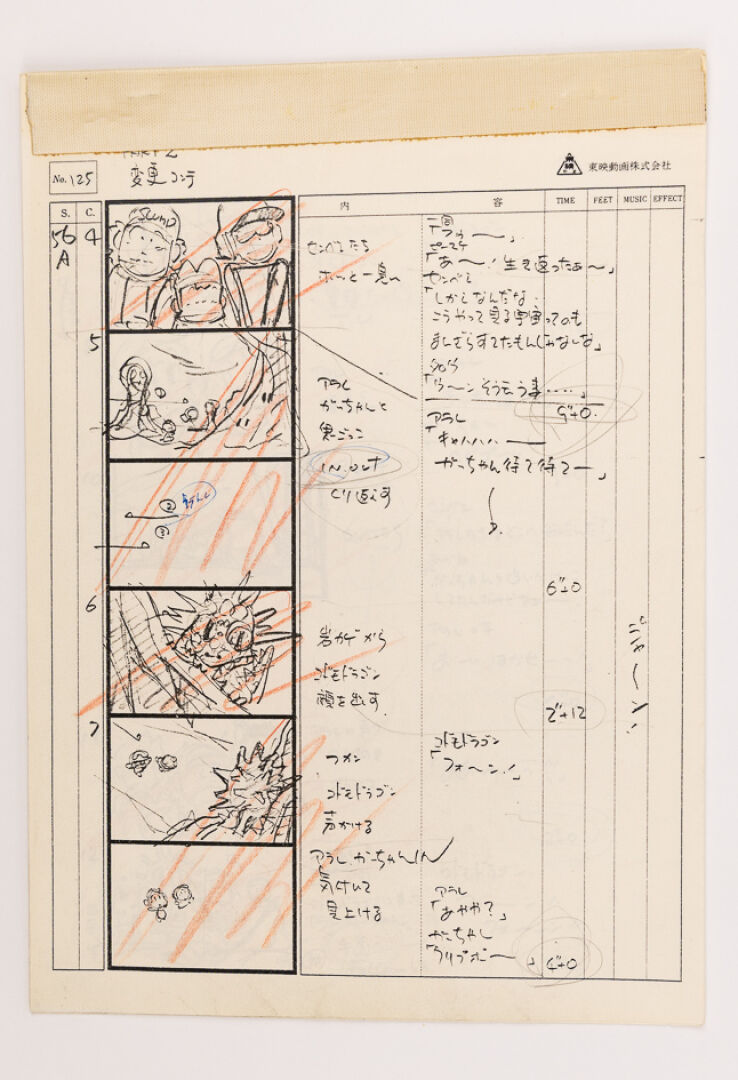 PART 2
変更コンテ
No. 125
東映動画株式会社
S. C. 内 容 TIME FEET MUSIC EFFECT
56 A
4
センベエたち
ホッと一息い
一同
「フゥ〜」
ピースケ
「あ〜! 生き返ったぁ〜」
センベエ
「しかしなんだな
こうやって見る宇宙ってのも
まんざらすてたもんじゃねえな」
タロウ
「う〜ン そう云うま……」
9"+0
5
アラレ
がっちゃんと
鬼ごっこ
IN. OUT
くり返えす
アラレ
「キャハハハ ー
がっちゃん待て待てー」
②
①
6"+0
6
岩カゲから
コドモドラゴン
顔を出す
2"+12
7
ナメ
コドモドラゴン
声かける
コドモドラゴン
「フォ〜ン!」
アラレ. がっちゃん
気付いて
見上げる
アラレ
「あやや?」
がっちゃん
「クリプポー
4"+0